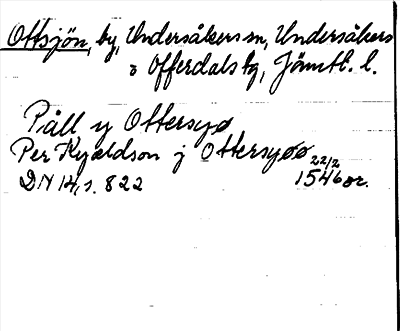 Ottsjön, by, Undersåkers sn, Undersåkers
o Offerdals tg, Jämtl. l.
Påll y Ottersyø
Per Kyældson j Ottersyøø 22/2
DN 14, s. 822 1546 or.